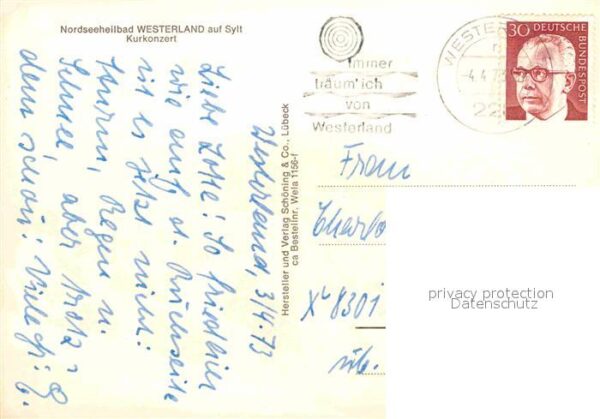 Nordseeheilbad WESTERLAND auf Sylt
Kurkonzert
Westerland, 3/4.73
Liebe Lotte! So friedlich
wie auf d. Rückseite
ist es jetzt nicht:
Sturm, Regen u.
Schnee, aber trotz-
dem schön! Viele
Hersteller und Verlag Schöning & Co., Lübeck
ca Bestellnr. Weila 1156-f
immer
träum' ich
von
Westerland
WESTER
-4.4.73
22
30 DEUTSCHE BUNDESPOST
Frau
Charlo
X 8301
privacy protection
Datenschutz